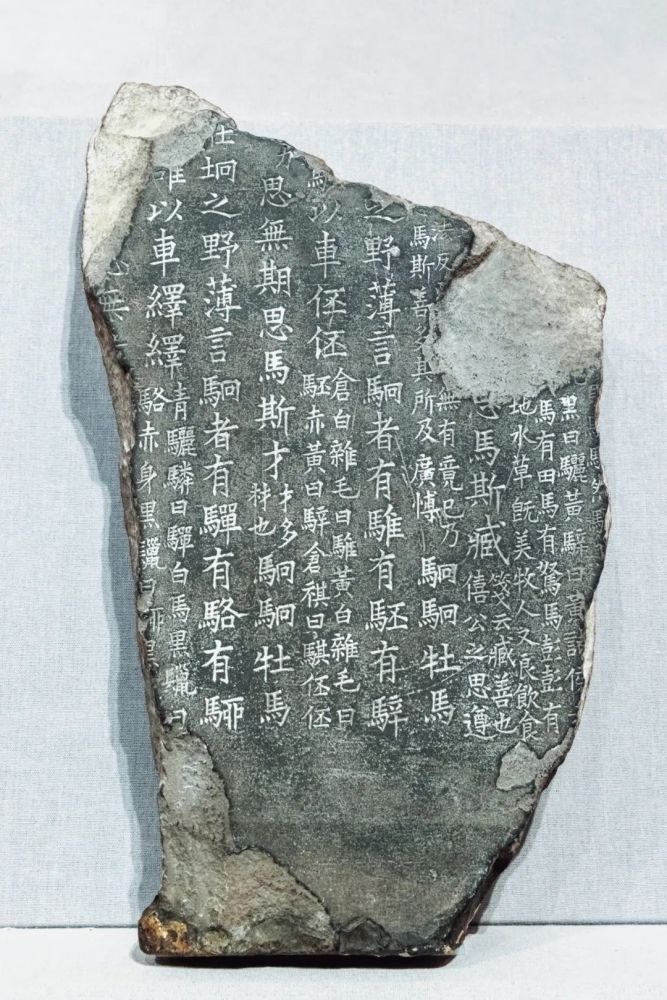 馬
黑曰驪黃騂曰黃諸侯
馬有田馬有駑馬彭彭有
地水草既美牧人又良飲食
思馬斯臧箋云臧善也
僖公之思遵
法反
無有竟已乃
馬斯善多其所及廣博駉駉牡馬
之野薄言駉者有騅有駓有騂
以車伾伾倉白雜毛曰騅黃白雜毛曰
駓赤黃曰騂倉祺曰騏伾伾
思無期思馬斯才才多
材也駉駉牡馬
在坰之野薄言駉者有驒有駱有駵
以車繹繹青驪驎曰驒白馬黑鬣曰
駱赤身黑鬣曰駵黑
無